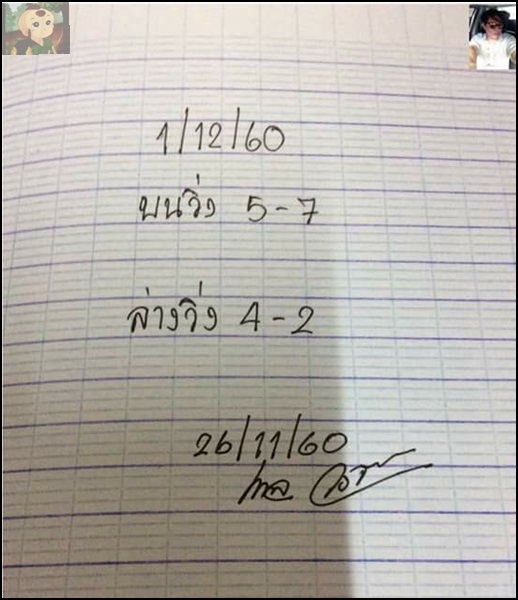 1/12/60
บนวิ่ง 5-7
ล่างวิ่ง 4-2
26/11/60